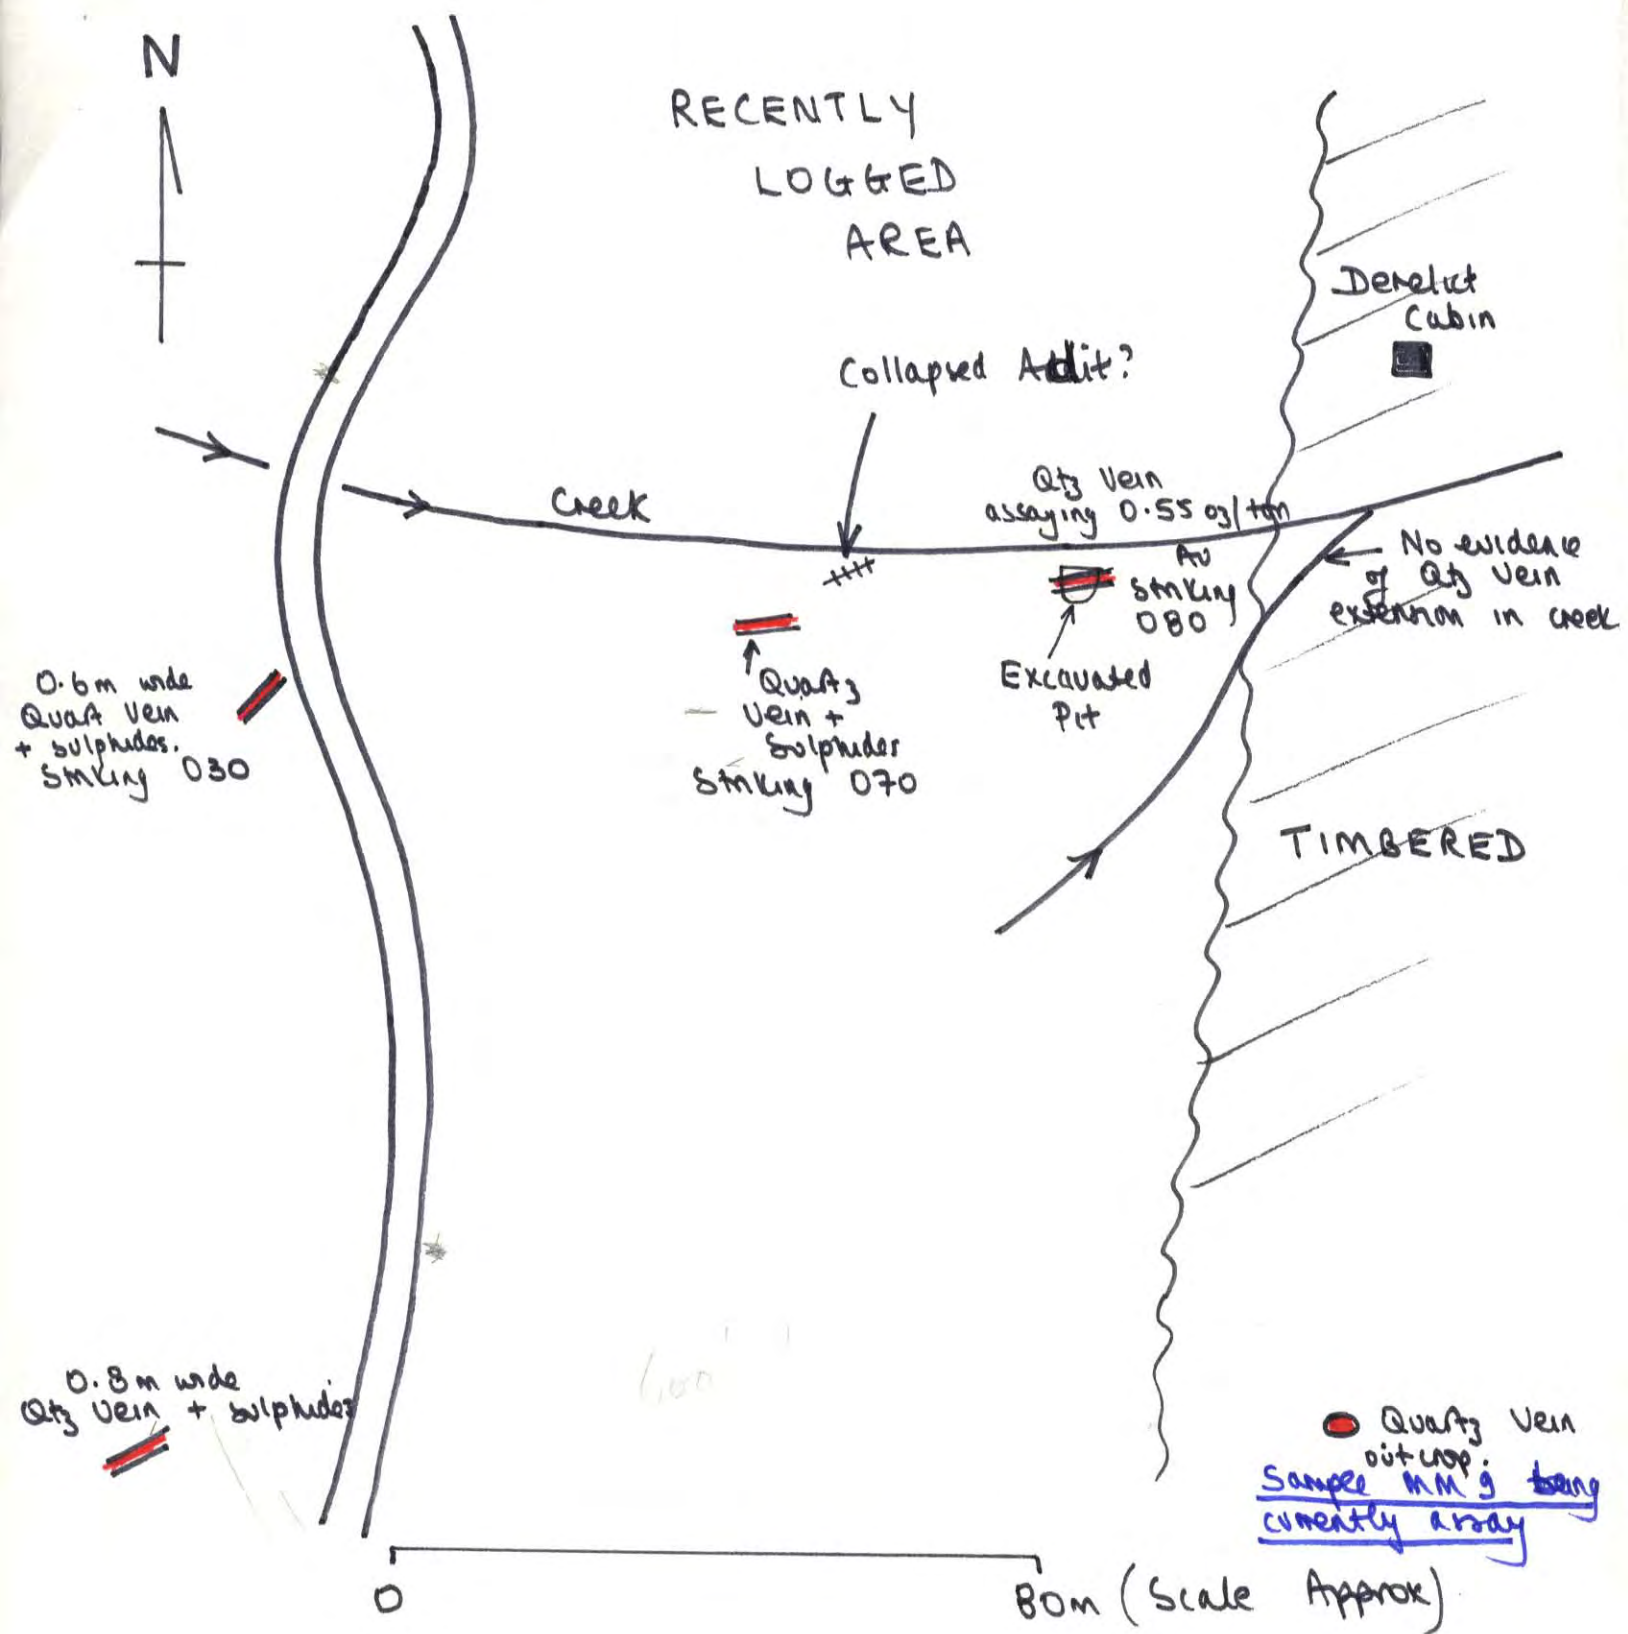 N
RECENTLY
LOGGED
AREA
Derelict
Cabin
Collapsed Addit?
Qtz Vein
assaying 0.55 oz/ton
Au
Striking
080
Creek
No evidence
of Qtz Vein
extension in creek
0.6m wide
Quart Vein
+ sulphides.
Striking 030
Quartz
Vein +
Sulphides
Striking 070
Excavated
Pit
TIMBERED
0.8m wide
Qtz Vein + sulphides
Quartz Vein
outcrop.
Sample MM 9 being
currently assay
0
80m (Scale Approx)